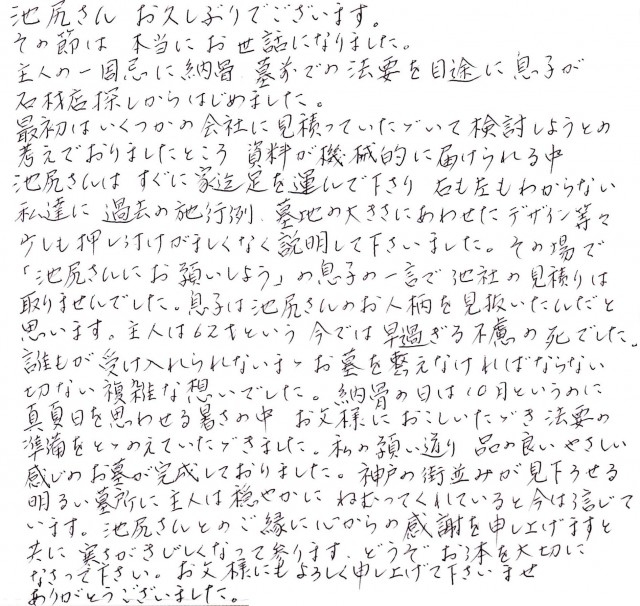 池尻さん お久しぶりでございます。
その節は 本当にお世話になりました。
主人の一周忌に納骨、墓前での法要を目途に息子が
石材店探しからはじめました。
最初はいくつかの会社に見積っていただいて検討しようとの
考えでおりましたところ 資料が機械的に届けられる中
池尻さんは すぐに家迄足を運んで下さり 右も左もわからない
私達に 過去の施行例、墓地の大きさにあわせたデザイン等々
少しも押し付けがましくなく説明して下さいました。その場で
「池尻さんにお願いしよう」の息子の一言で他社の見積りは
取りませんでした。息子は池尻さんのお人柄を見抜いたんだと
思います。主人は62才という 今では早過ぎる不慮の死でした。
誰もが受け入れられないまゝお墓を整えなければならない
切ない複雑な想いでした。納骨の日は10月というのに
真夏日を思わせる暑さの中 お父様におこしいただき法要の
準備をとゝのえていただきました。私の願い通り 品の良いやさしい
感じのお墓が完成しておりました。神戸の街並みが見下ろせる
明るい墓所に主人は穏やかに ねむってくれていると今は信じて
います。池尻さんとのご縁に心からの感謝を申し上げますと
共に 寒さがきびしくなって参ります、どうぞお体を大切に
なさって下さい。お父様にもよろしく申し上げて下さいませ
ありがとうございました。